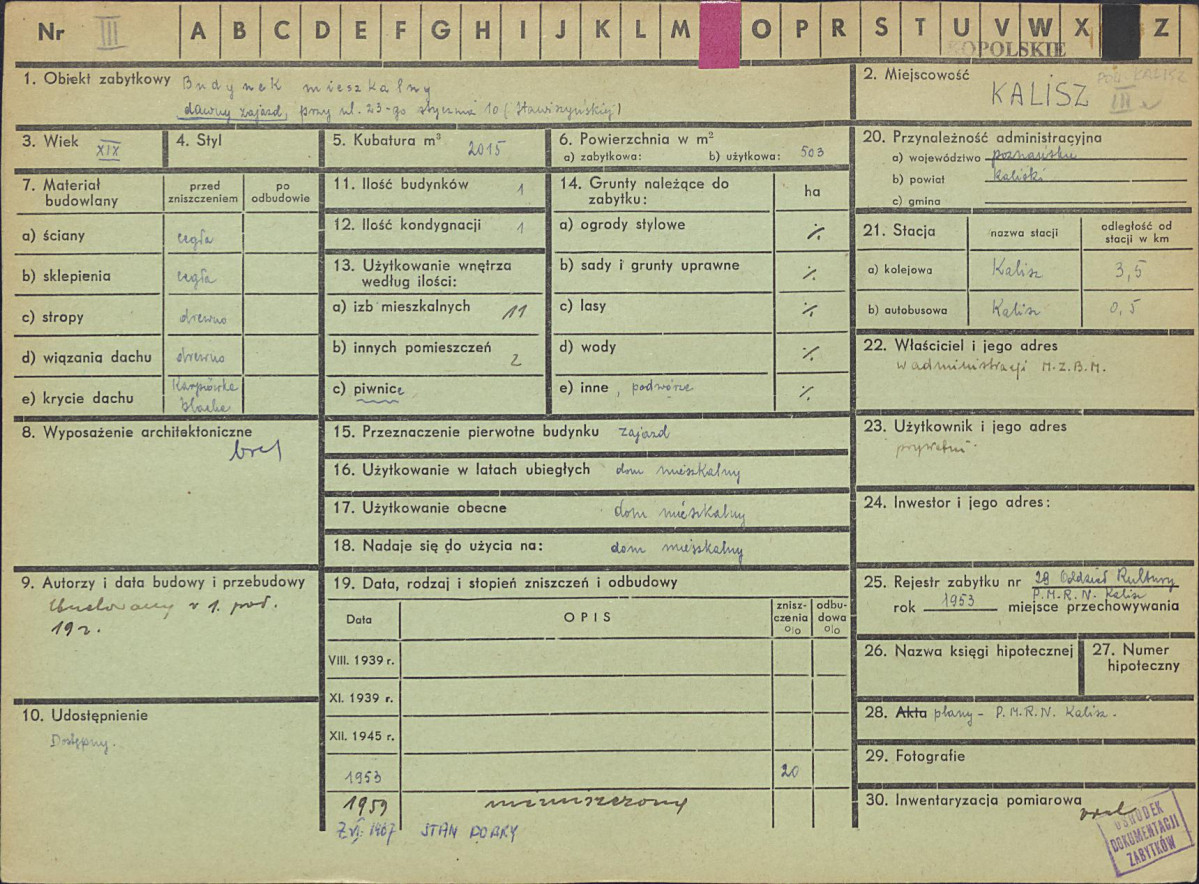 Nr III A B C D E F G H I J K L M O P R S T U V W X Z
OPOLSKIE
1. Obiekt zabytkowy Budynek mieszkalny
dawny zajazd, przy ul. 23-go stycznia 10 (Stawiszyńskiej)
2. Miejscowość
KALISZ
POW. KALISZ
III
3. Wiek XIX
4. Styl
5. Kubatura m³ 2015
6. Powierzchnia w m²
a) zabytkowa: b) użytkowa: 503
7. Materiał budowlany
przed zniszczeniem
po odbudowie
a) ściany cegła
b) sklepienia cegła
c) stropy drewno
d) wiązania dachu drewno
e) krycie dachu Karpiówka
blacha
8. Wyposażenie architektoniczne
brak
9. Autorzy i data budowy i przebudowy
Zbudowany w 1. poł.
19 w.
10. Udostępnienie
Dostępny.
11. Ilość budynków 1
12. Ilość kondygnacji 1
13. Użytkowanie wnętrza
według ilości:
a) izb mieszkalnych 11
b) innych pomieszczeń 2
c) piwnice
14. Grunty należące do
zabytku:
ha
a) ogrody stylowe ./.
b) sady i grunty uprawne ./.
c) lasy ./.
d) wody ./.
e) inne, podwórze ./.
15. Przeznaczenie pierwotne budynku zajazd
16. Użytkowanie w latach ubiegłych dom mieszkalny
17. Użytkowanie obecne dom mieszkalny
18. Nadaje się do użycia na: dom mieszkalny
19. Data, rodzaj i stopień zniszczeń i odbudowy
Data
OPIS
znisz-
czenia
o|o
odbu-
dowa
o|o
VIII. 1939 r.
XI. 1939 r.
XII. 1945 r.
1953 20
1959 niezniszczony
Z VI. 1967 STAN DOBRY
20. Przynależność administracyjna
a) województwo poznańskie
b) powiat kaliski
c) gmina
21. Stacja
nazwa stacji
odległość od
stacji w km
a) kolejowa Kalisz 3,5
b) autobusowa Kalisz 0,5
22. Właściciel i jego adres
w administracji M.Z.B.M.
23. Użytkownik i jego adres
prywatni
24. Inwestor i jego adres:
25. Rejestr zabytku nr 29 Oddział Kultury
P.M.R.N. Kalisz
rok 1953 miejsce przechowywania
26. Nazwa księgi hipotecznej
27. Numer
hipoteczny
28. Akta plany - P.M.R.N. Kalisz.
29. Fotografie
30. Inwentaryzacja pomiarowa brak
OŚRODEK
DOKUMENTACJI
ZABYTKÓW